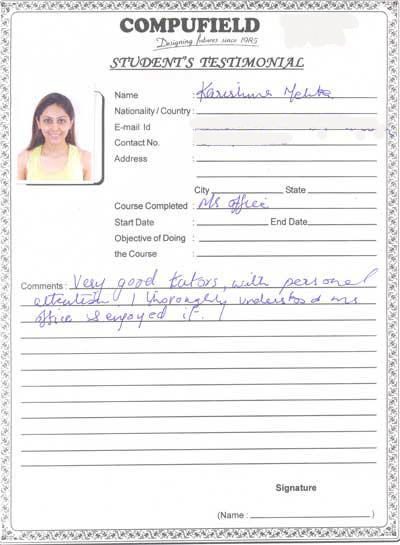 COMPUFIELD
Designing futures since 1985
STUDENT'S TESTIMONIAL
Name : Karishma Mehta
Nationality / Country :
E-mail Id
Contact No.
Address :
City State
Course Completed : MS office
Start Date : End Date
Objective of Doing :
the Course :
Comments : Very good tutors, with personal
attention. I thoroughly understood ms
office & enjoyed it.
Signature
(Name : )